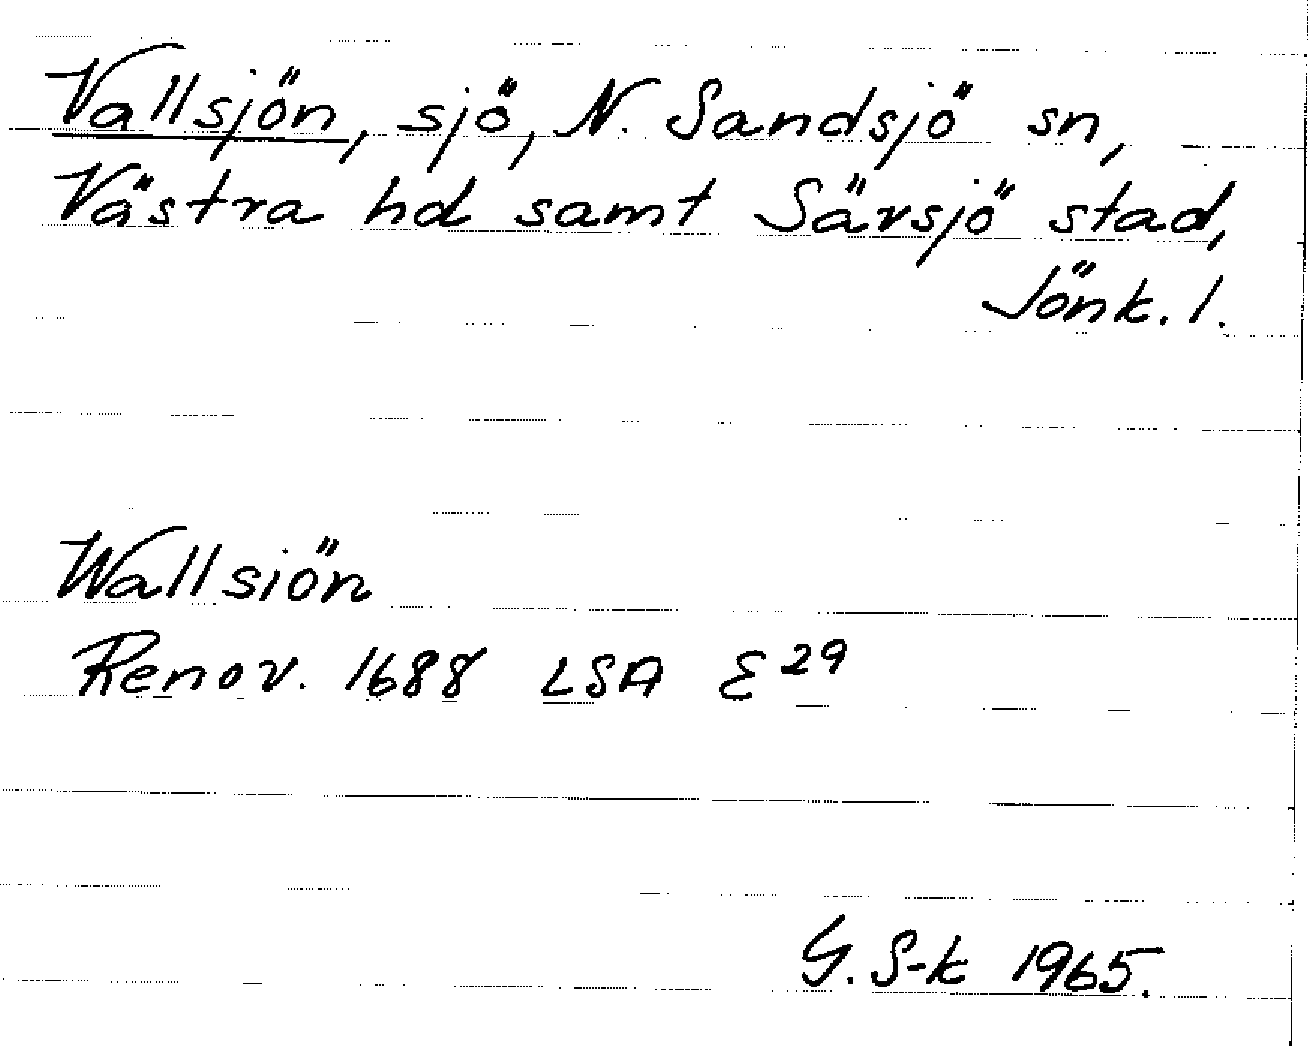 Vallsjön, sjö, N. Sandsjö sn,
Västra hd samt Sävsjö stad,
Jönk. l.
Wallsiön
Renov. 1688 LSA E 29
G. S-k 1965.